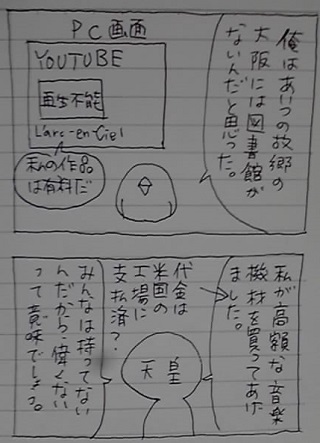 PC画面
YOUTUBE
再生不能
L'arc-en-Ciel
私の作品
は有料だ
俺はあいつの故郷の
大阪には図書館が
ないんだと思った。
私が高額な音楽
機材を買ってあげ
ました。
代金は
米国の
工場に
支払済？
天皇
みんなは持ってない
んだから、偉くない
って意味でしょう。